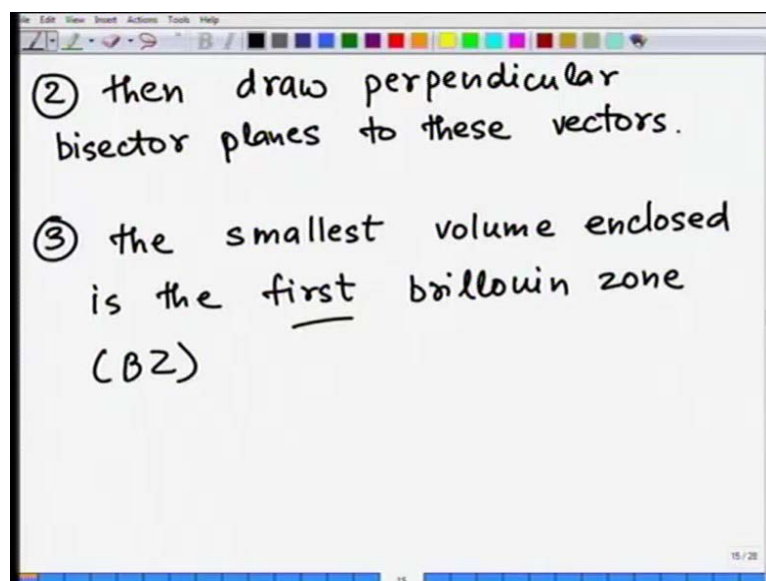 File Edit View Insert Actions Tools Help
② then draw perpendicular
bisector planes to these vectors.
③ the smallest volume enclosed
is the first brillouin zone
(BZ)
15/28
15